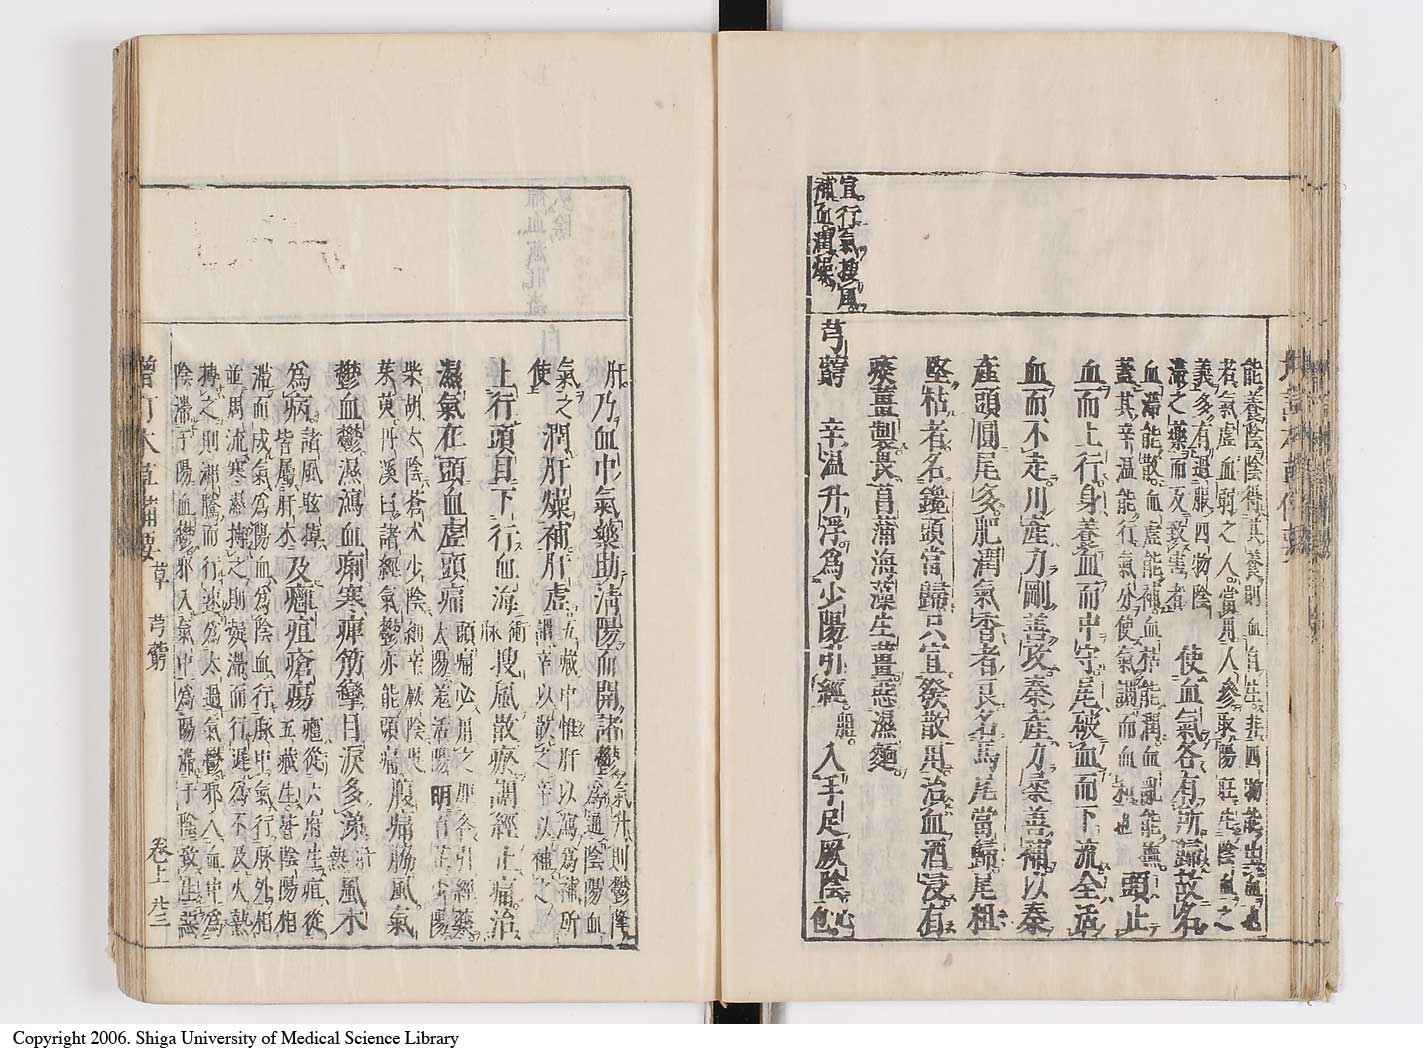 宜行氣搜風
補血潤燥
能養陰陰得其養則血自生非四物能生血也
若氣虛血弱之人當用人參取陽旺生陰血之
義多有過服四物陰
滯之藥而反致害者
使血氣各有所歸故名
血滯能散血虛能補血枯能潤血亂能撫
蓋其辛温能行氣分使氣調而血和也
頭止
血而上行身養血而中守尾破血而下流全活
血而不走川產力剛善攻秦產力柔善補以秦
產頭圓尾多肥潤氣香者良名馬尾當歸尾粗
堅枯者名鑱頭當歸只宜發散用治血酒浸有
痰薑製畏菖蒲海藻生薑惡濕麵
芎藭 辛温升浮為少陽引經膽入手足厥陰心包
肝乃血中氣藥助清陽而開諸鬱
氣升則鬱降
為通陰陽血
氣之
使
潤肝燥補肝虛
五藏中惟肝以瀉為補所
謂辛以散之辛以補之
上行頭目下行血海
衝脈
搜風散瘀調經止痛治
濕氣在頭血虛頭痛
頭痛必用之加各引經藥
太陽羌活陽明白芷少陽
柴胡太陰蒼朮少陰細辛厥陰吳
茱萸丹溪曰諸經氣鬱亦能頭痛
腹痛脇風氣
鬱血鬱濕瀉血痢寒痺筋攣目淚多涕
肝熱
風木
為病
諸風眩掉
皆屬肝木
及癰疽瘡瘍
癰從六府生疽從
五藏生皆陰陽相
滯而成氣為陽血為陰血行脉中氣行脉外相
並周流寒濕搏之則凝滯而行遲為不及火熱
搏之則沸騰而行速為太過氣鬱邪入血中為
陰滯于陽血鬱邪入氣中為陽滯于陰致生惡
增訂本草備要 草 芎藭 卷上 廿三